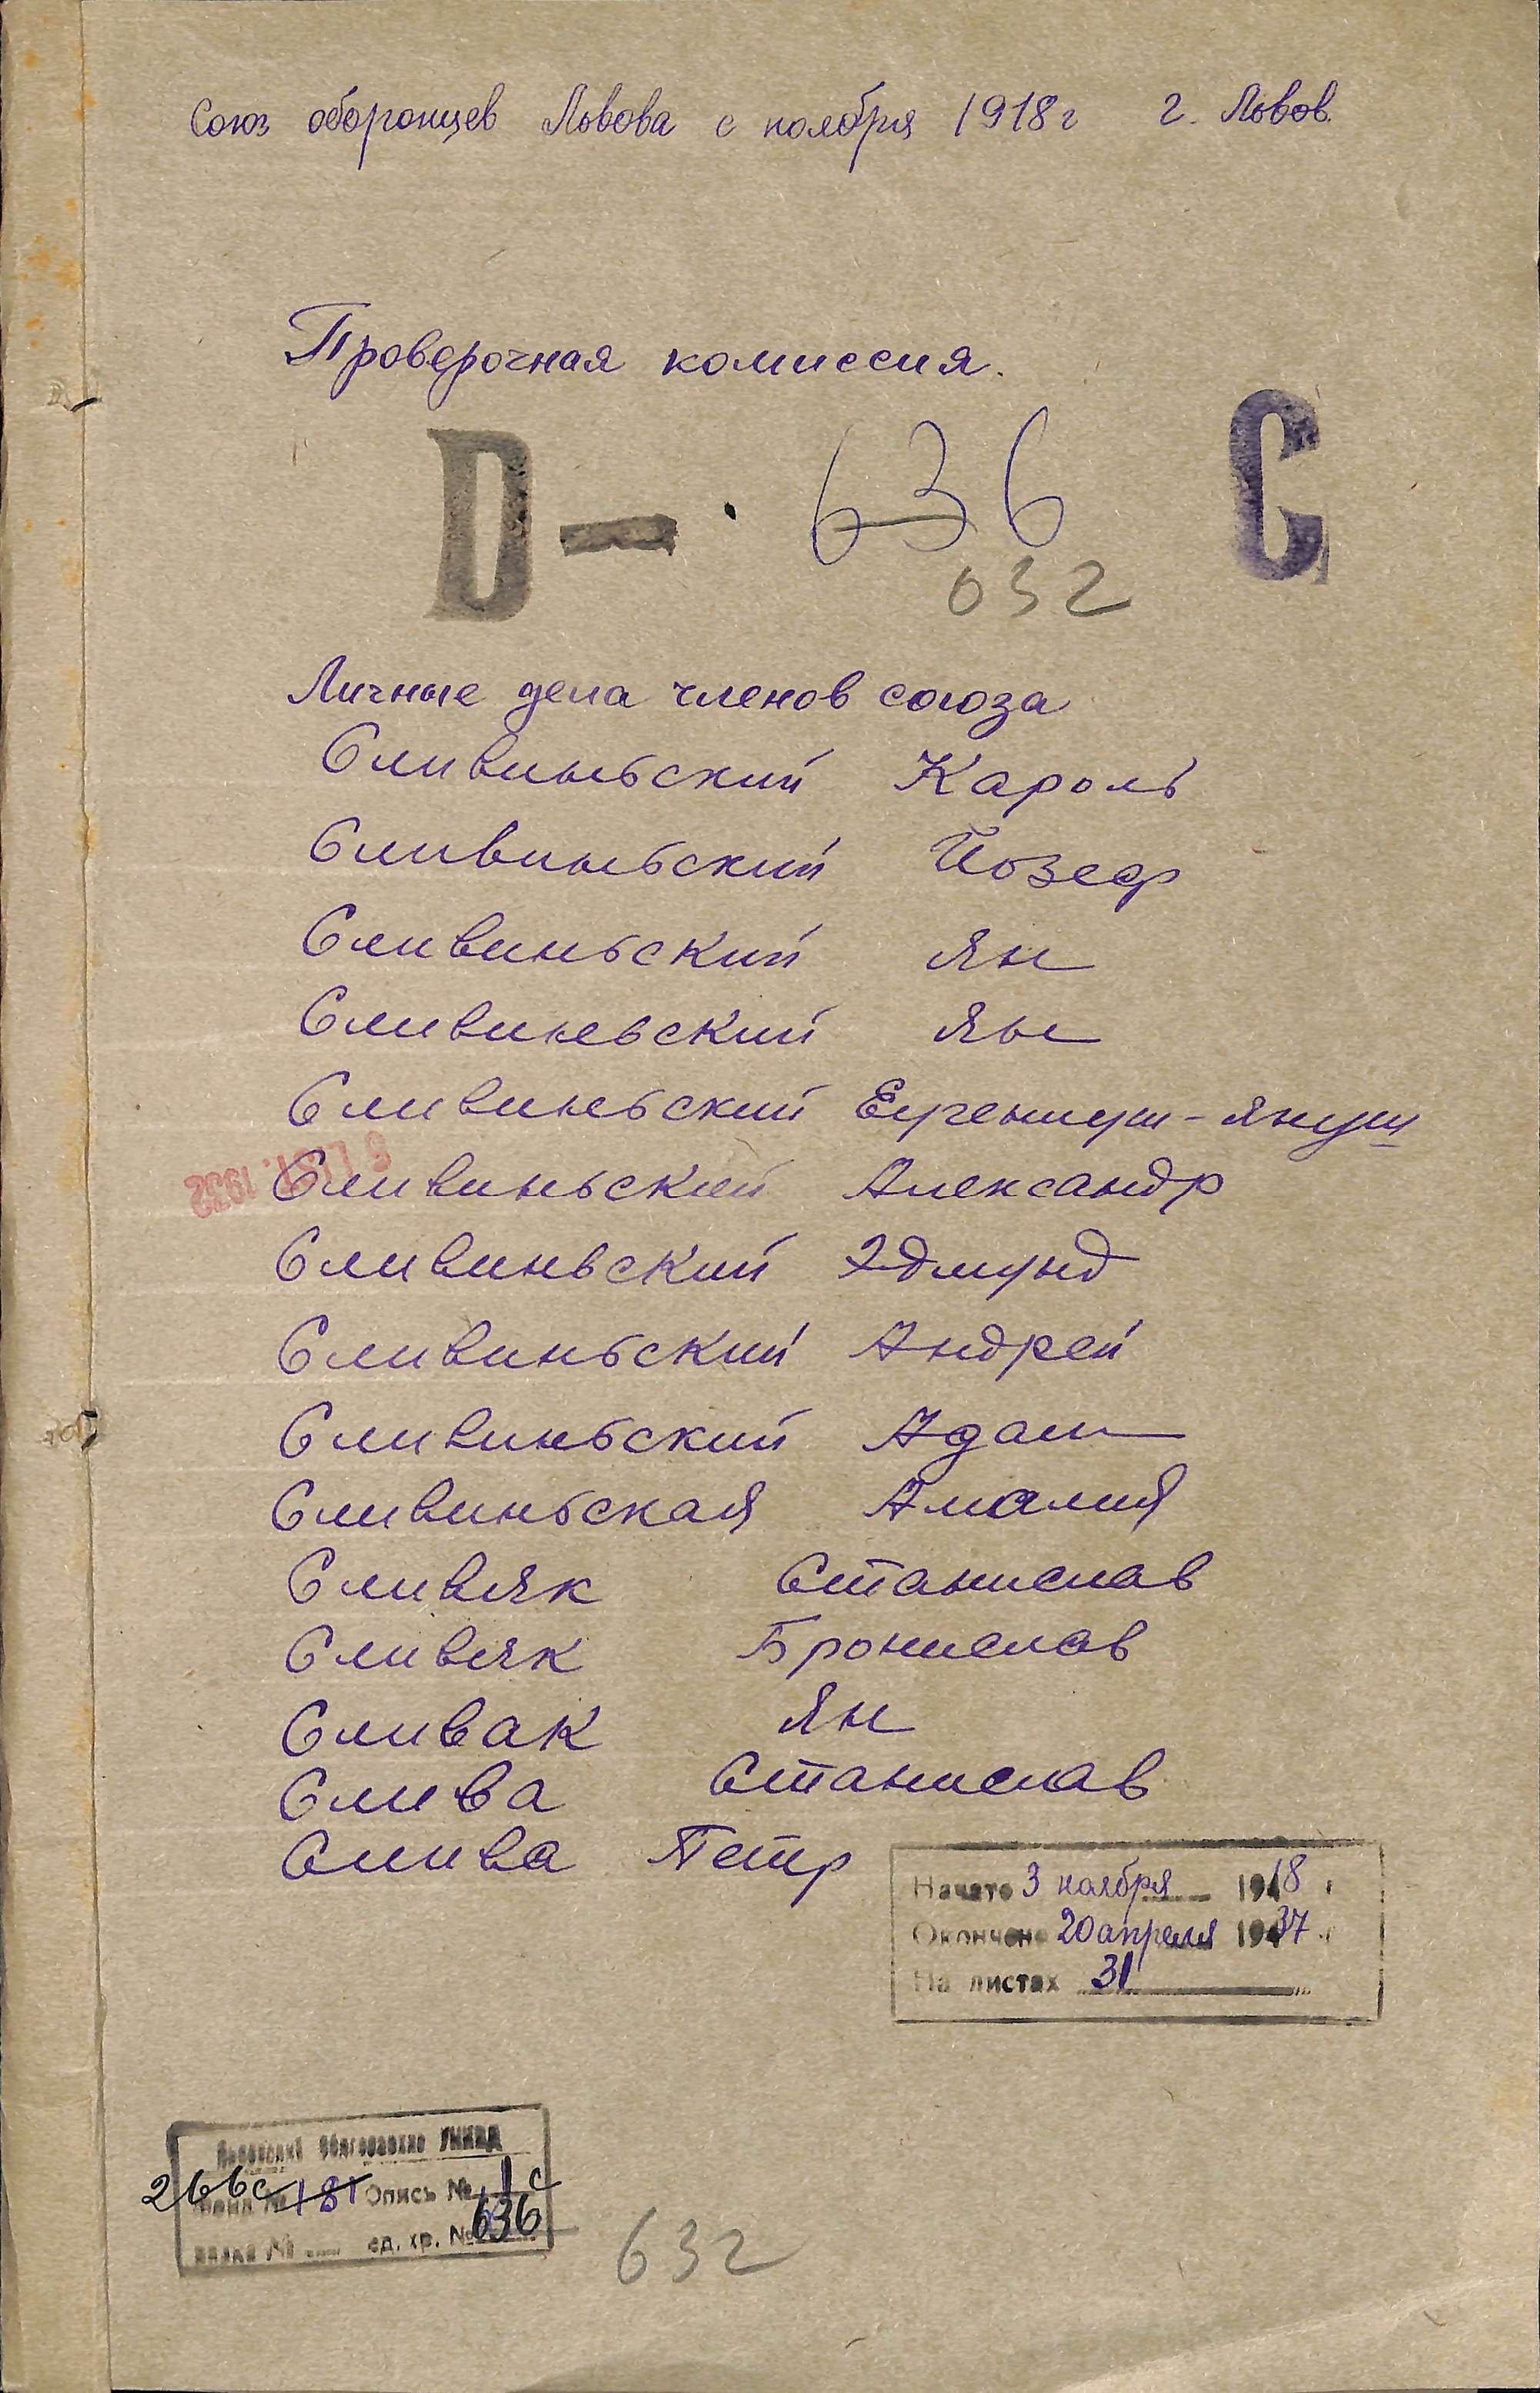 Союз оборонцев Львова с ноября 1918 г г. Львов.
Проверочная комиссия.
D — 636 С
632
Личные дела членов союза
Сливиньский Кароль
Сливиньский Йозеф
Сливиньский Ян
Сливиньский Ян
Сливиньский Еугениуш-Януш
Сливиньский Александр
Сливиньский Эдмунд
Сливиньский Андрей
Сливиньский Адам
Сливиньская Амалия
Сливяк Станислав
Сливяк Бронислав
Сливак Ян
Слива Станислав
Слива Петр
Начато 3 ноября 1918 г
Окончено 20 апреля 1937 г
На листах 31
Львовский Облгосархив УНКВД
266с Фонд № 181 Опись № 1с
ед. хр. № 636
632